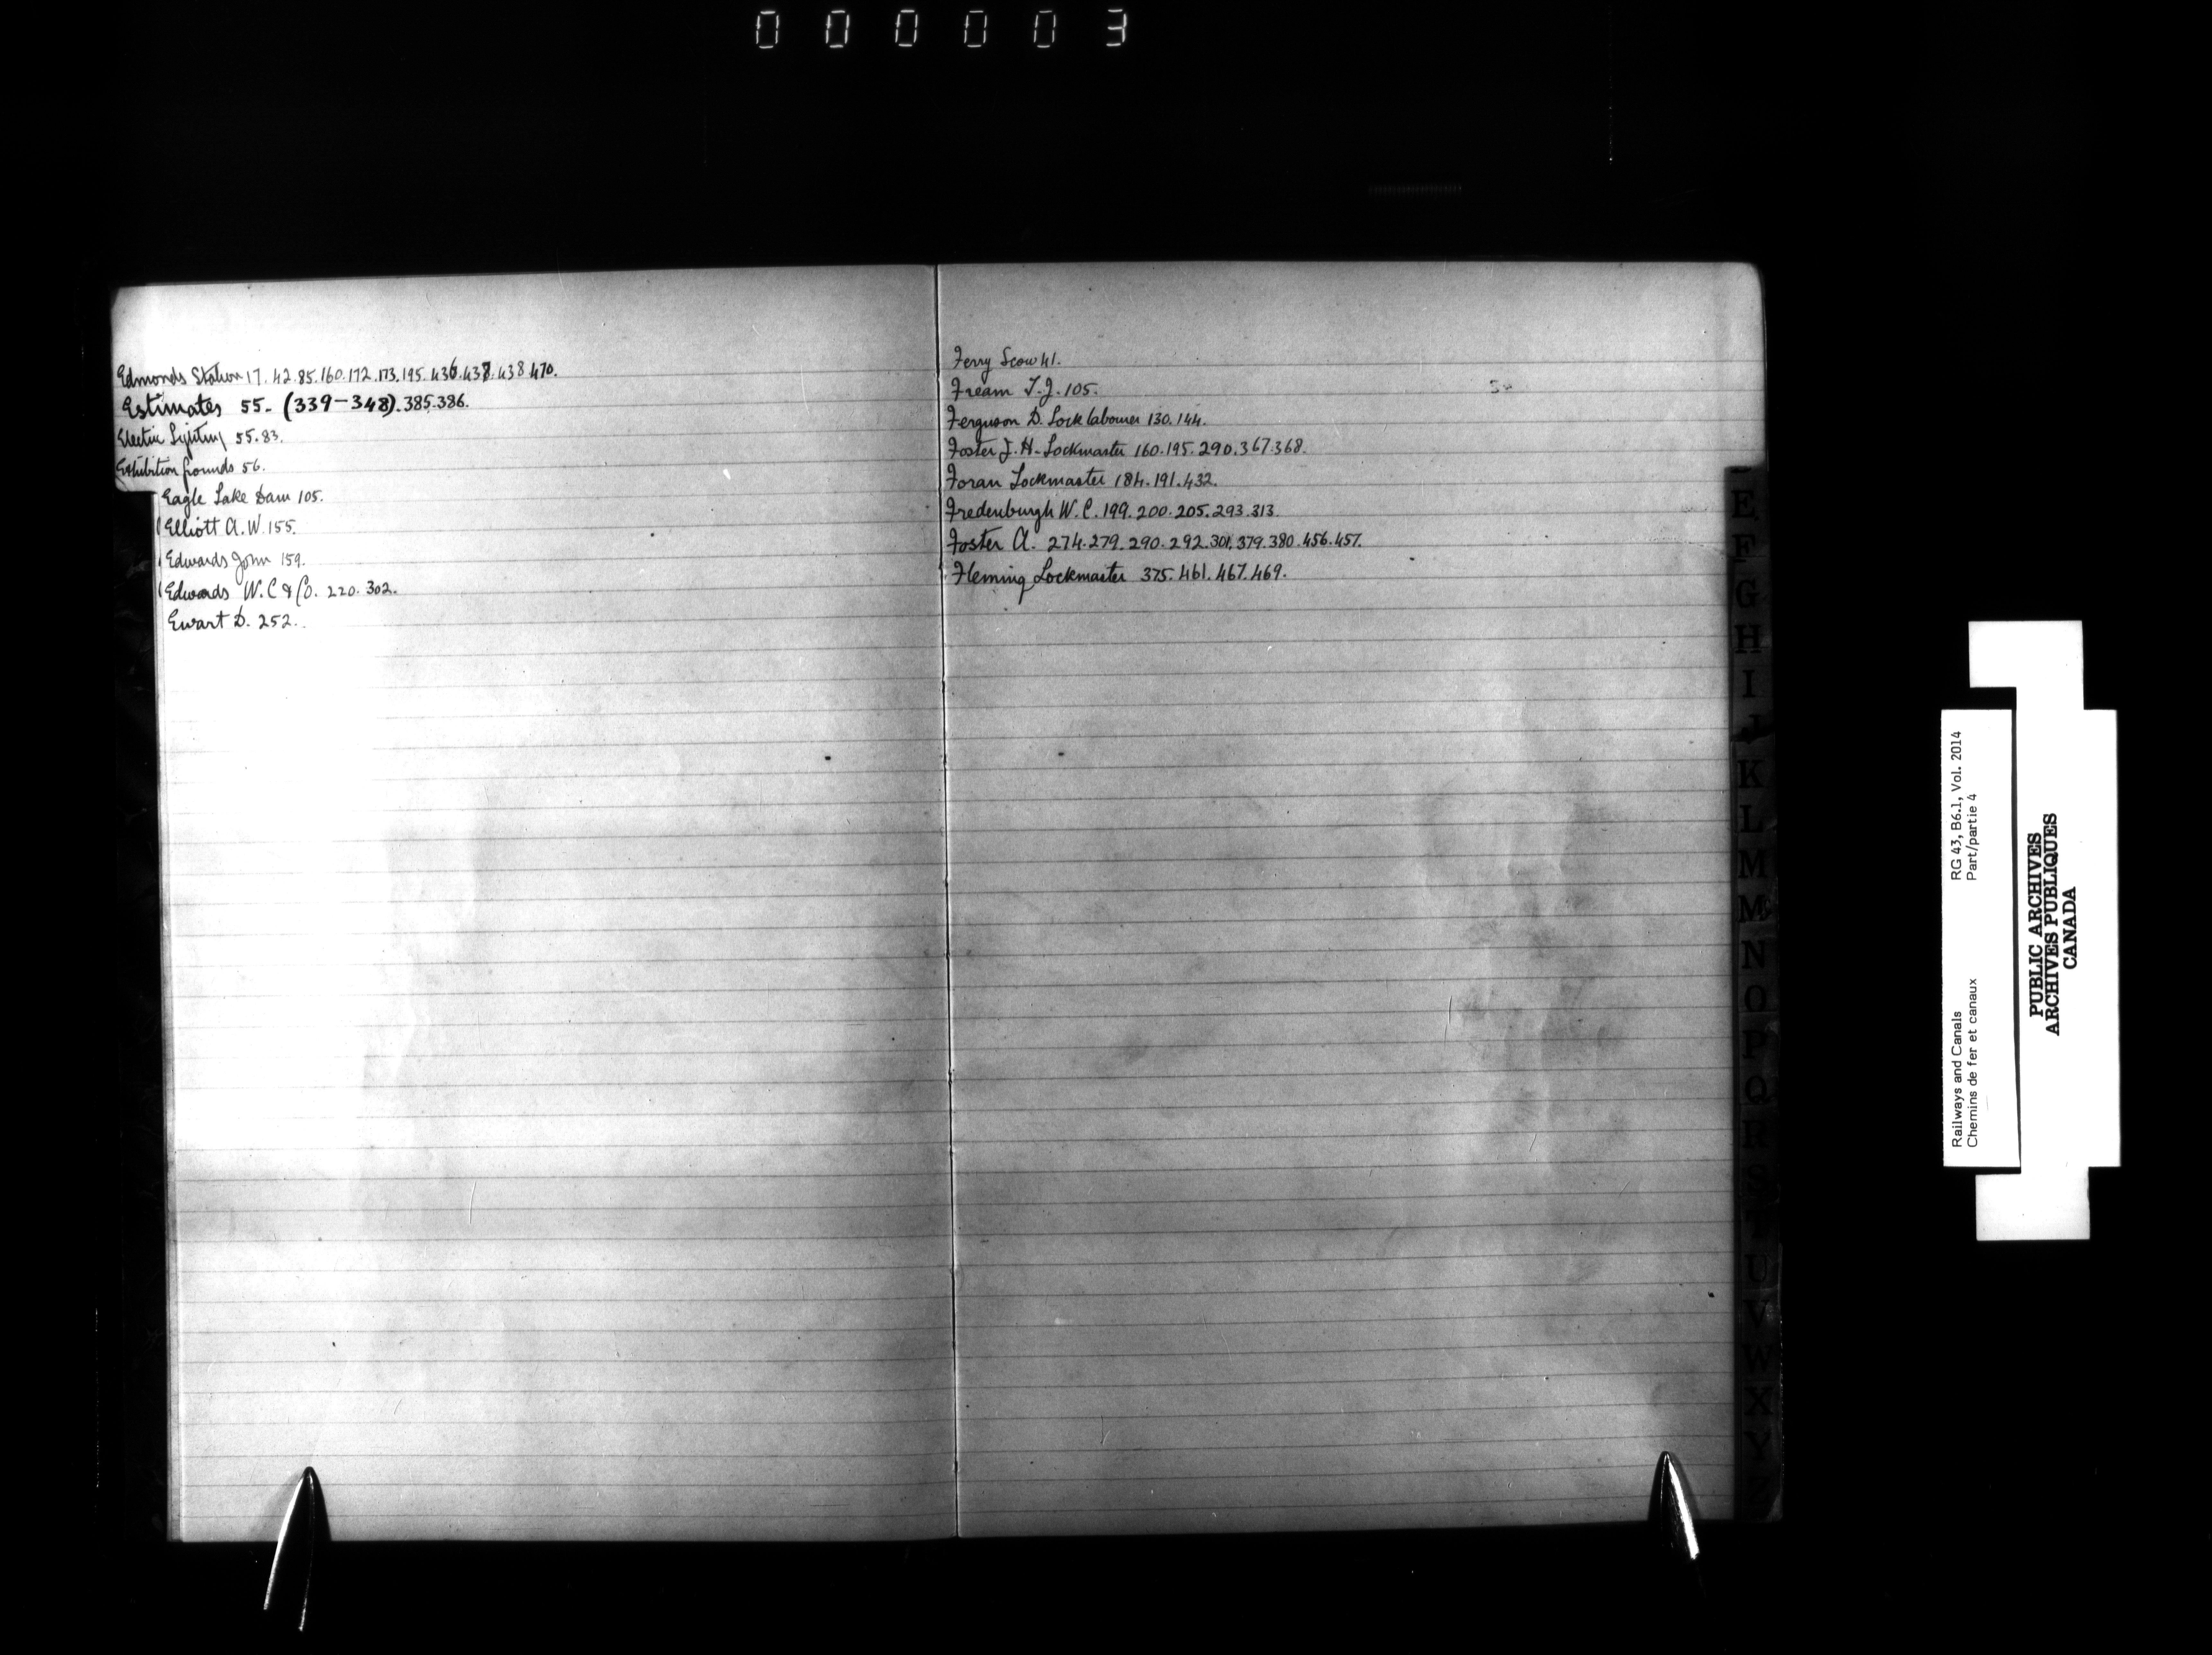 000003
Edmonds Station 17. 42. 85. 160. 172. 173. 195. 436. 437. 438. 470.
Estimates 55. (339-348). 385. 386.
Electric Lighting 55. 83.
Exhibition Grounds 56.
Eagle Lake Dam 105.
Elliott A. W. 155.
Edwards John 159.
Edwards W. C & Co. 220. 302.
Ewart D. 252.
Ferry Scow 41.
Fream T. J. 105.
Ferguson D. Lock labourer 130. 144.
Foster J. H. Lockmaster 160. 195. 290. 367. 368.
Foran Lockmaster 184. 191. 432.
Fredenburgh W. C. 199. 200. 205. 293. 313.
Foster A. 274. 279. 290. 292. 301. 379. 380. 456. 457.
Fleming Lockmaster 375. 461. 467. 469.
E
F
G
H
I
J
K
L
M
Mc
N
O
P
Q
R
S
T
U
V
W
X
Y
Z
Railways and Canals RG 43, B6.1, Vol. 2014
Chemins de fer et canaux Part/partie 4
PUBLIC ARCHIVES
ARCHIVES PUBLIQUES
CANADA